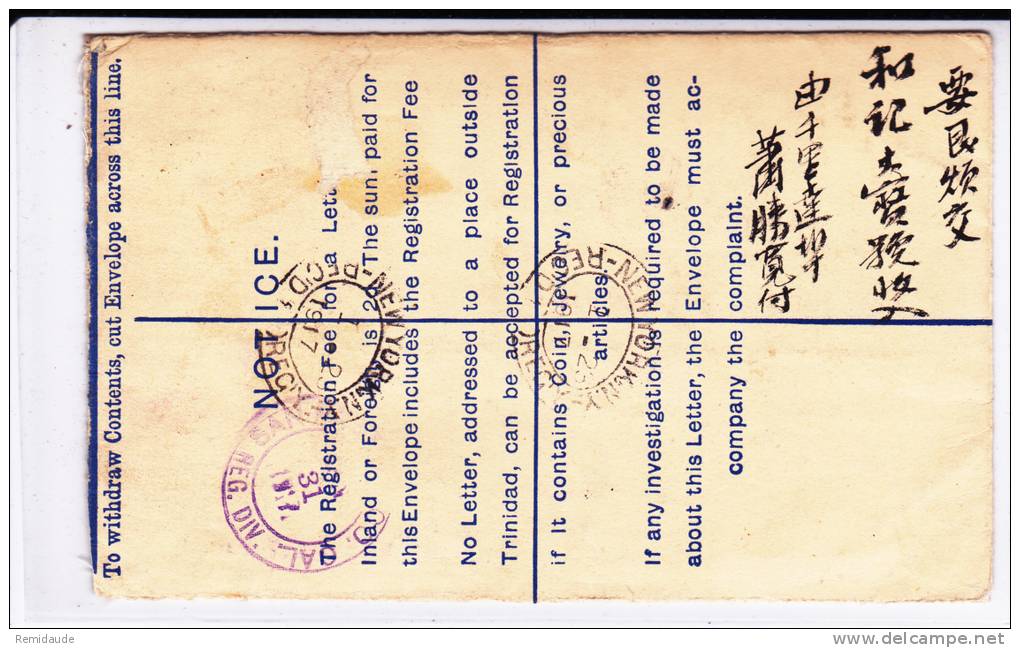 To withdraw Contents, cut Envelope across this line.
NOTICE.
The Registration Fee for a Lette
Inland or Foreign is 2d. The sum paid for
this Envelope includes the Registration Fee
No Letter, addressed to a place outside
Trinidad, can be accepted for Registration
if It contains Coin, Jewelry, or precious
articles.
If any investigation is required to be made
about this Letter, the Envelope must ac-
company the complaint.
要民煩交
和記大寶號收入
蕭勝寬付
NEW YORK, N.Y.
REC'D
1917
NEW YORK, N.Y.
REC'D
REG. DIV.
31
Remidaude
www.delcampe.net